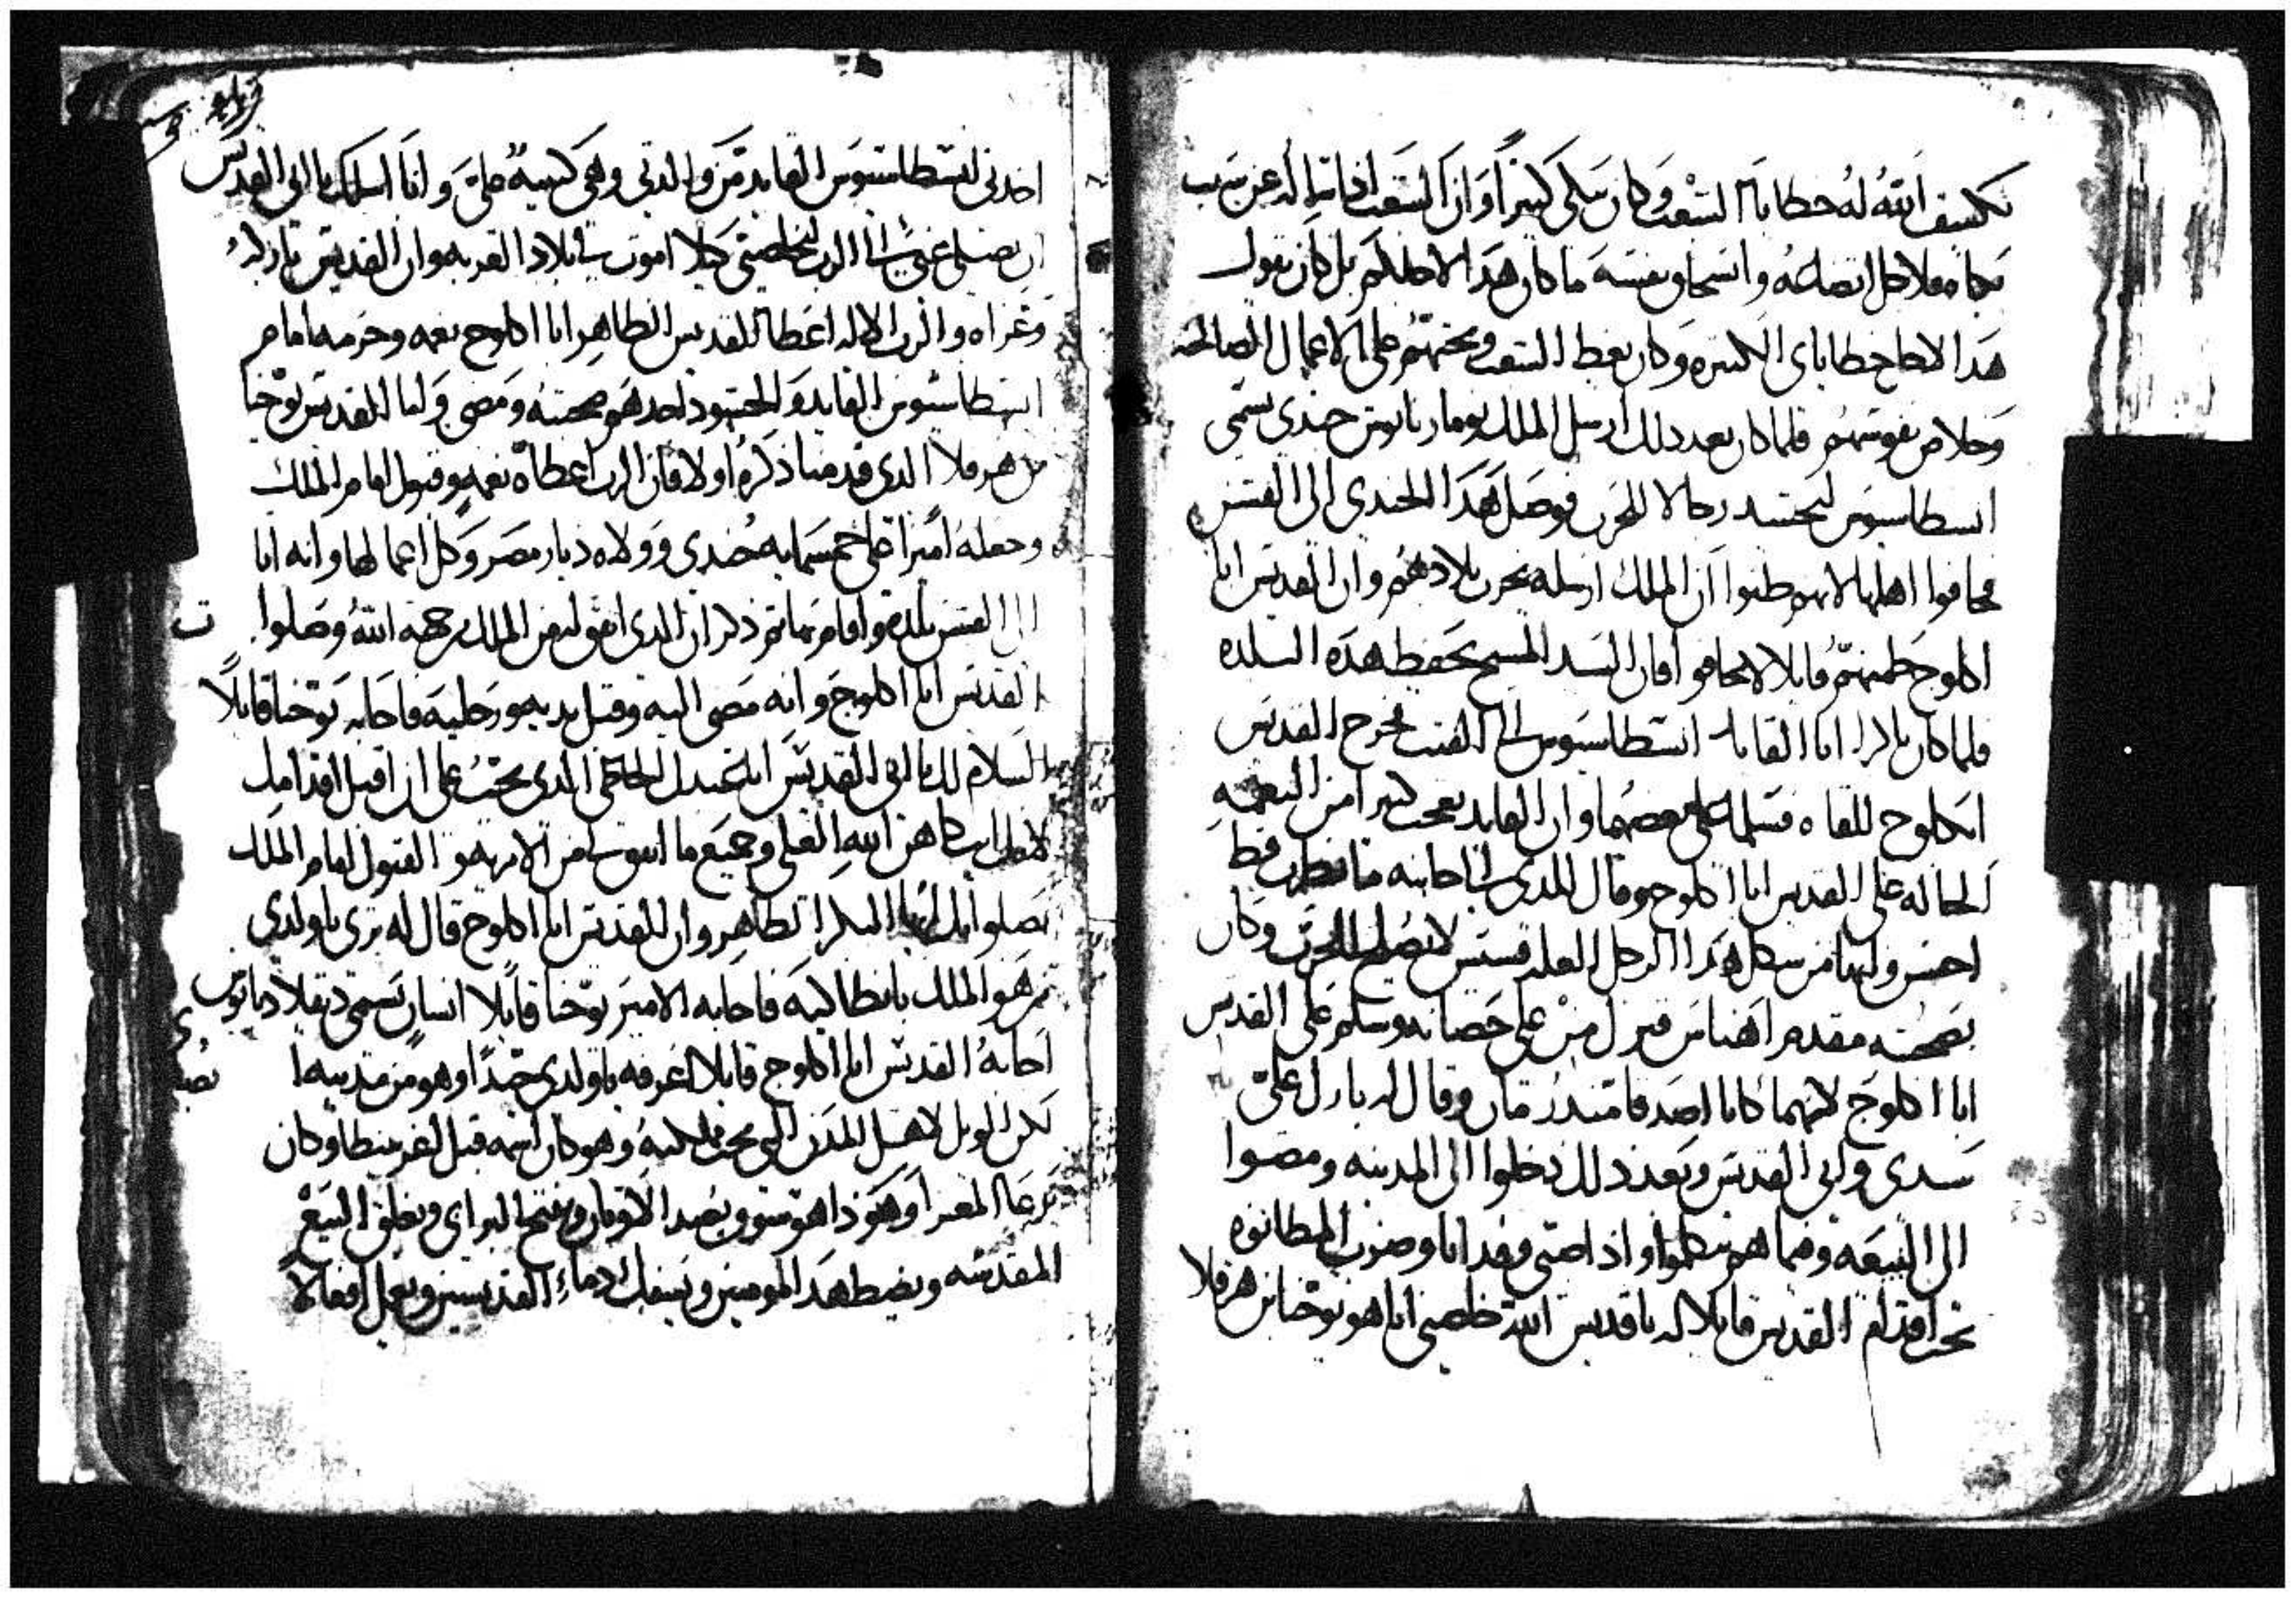 تكشف الله له خطايا الشعب وكان يبكي كثيراً وان الشعب اذا سالوه عن سبب
بكاه فلاجل اتضاعه وانسحاق نفسه ما كان هدا الا حلكم بل كان يقول
هدا لاجل خطاياي الكتيره وكان يعظ الشعب ويحتهم على الاعمال الصالحه
وخلاص نفوسهم فلما كان بعد دلك ارسل الملك نومارنانوس جندي يسمى
اسطاسيوس ليحشد رجالا للحرب فوصل هدا الجندي الى الفنش
فخافوا اهلها لانهم ظنوا ان الملك ارسله يخرب بلادهم وان القديس ابا
اكلوج طمنهم قايلا لا تخافوا فان السيد المسيح يحفظ هده البلده
فلما كان باكرا اتا القايد اسطاسيوس الى الفنش فخرج القديس
ابكلوج للقاه فسلما على بعضهما وان القايد تعجب كتيرا من النعمه
الحاله على القديس ابا اكلوج وقال للدي الى جانبه ما نظرت قط
احسن ولا ابها من شكل هدا الرجل العله قسيس لا يصلح للحرب وكان
بصحبته مقدم اهناس فنزل من على حصانه وسلم على القديس
ابا اكلوج لانهما كانا اصدقا منذ زمان وقال له بارك علي
سيدي وابي القديس وبعد دلك دخلوا الى المدينه ومضوا
الى البيعه وفيما هم يتكلموا واذا صبي وقد اتا وضرب المطانوه
تحت اقدام القديس قايلا له يا قديس الله خلصني انا هو يوحنا بن هرقلا
اخدني اسطاسيوس القايد من والدتي وهي كئيبه علي وانا اسلك يا ابي القديس
ان تصلي عني الى الرب ليخلصني كيلا اموت في بلاد الغربه وان القديس باركه
وعزاه والرب الاله اعطا للقديس الطاهر ابا اكلوج نعمه وحرمه امام
اسطاسيوس القايد والحشود احدهم صحبته ومضى ولما القديس يوحنا
بن هرقلا الدي قدمنا ذكره اولا فان الرب اعطاه نعمه وقبول امام الملك
وجعله اميرا على خمسمايه جندي وولاه ديار مصر وكل اعمالها وانه اتا
الى الفنش بلده واقام بها تم ذكر ان الدي اتفق له من الملك برحمه الله وصلوات
القديس ابا اكلوج وانه مضى اليه وقبل يديه ورجليه فاجابه يوحنا قايلاً
السلام لك يا ابي القديس ابا الدي يجب على ان اقبل اقدامك
لانك انت كاهن الله العلي وجميع ما انا فيه من الامريه والقبول امام الملك
بصلواتك ايها البكر الطاهر وان القديس ابا اكلوج قال له ترى يا ولدي
من هو الملك بانطاكيه فاجابه الامير يوحنا قايلا انسان يسمى دقلاديانوس
اجابه القديس ابا اكلوج قايلا اعرفه يا ولدي جيداً وهو من مدينه ابصاي
لكن الويل لاهل المدن التي تحت مملكته وهو كان اسمه قبل اغريبطا وكان
يرعا المعزا وهوذا هو سوف يعبد الاوتان ويفتح البرابي ويغلق البيع
المقدسه ويضطهد المومنين ويسفك دماء القديسين ويعمل افعالاً